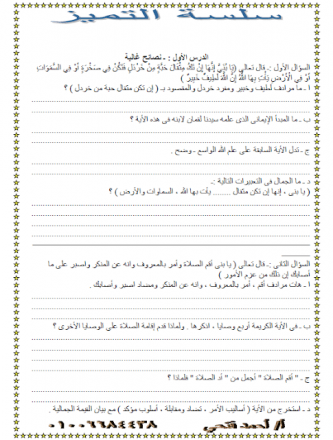 سلسلة التميز
الدرس الأول : ـ نصائح غالية
السؤال الأول :ـ قال تعالى (يَا بُنَيَّ إِنَّهَا إِنْ تَكُ مِثْقَالَ حَبَّةٍ مِنْ خَرْدَلٍ فَتَكُنْ فِي صَخْرَةٍ أَوْ فِي السَّمَوَاتِ
أَوْ فِي الْأَرْضِ يَأْتِ بِهَا اللَّهُ إِنَّ اللَّهَ لَطِيفٌ خَبِيرٌ )
أ ـ ما مرادف لطيف وخبير ومفرد خردل والمقصود بـ ( إن تكن مثقال حبة من خردل ) ؟
ب ـ ما المبدأ الإيمانى الذى علمه سيدنا لقمان لابنه فى هذه الآية ؟
ج ـ تدل الآية السابقة على علم الله الواسع ـ وضح .
د ـ ما الجمال فى التعبيرات التالية :ـ
( يا بنى ، إنها إن تكن مثقال ........ يأت بها الله ، السماوات والأرض ) ؟
السؤال الثانى :ـ قال تعالى ( يا بنى أقم الصلاة وأمر بالمعروف وانه عن المنكر واصبر على ما
أصابك إن ذلك من عزم الأمور )
أ ـ هات مرادف أقم ، أمر بالمعروف ، وانه عن المنكر ومضاد اصبر وأصابك .
ب ـ فى الآية الكريمة أربع وصايا ، اذكرها . ولماذا قدم إقامة الصلاة على الوصايا الأخرى ؟
ج ـ " أقم الصلاة " أجمل من " أد الصلاة " فلماذا ؟
د ـ استخرج من الآية ( أساليب الأمر ، تضاد ومقابلة ، أسلوب مؤكد ) مع بيان القيمة الجمالية .
أ/ أحمد فتحي ٠١٠٠٦٦٨٤٤٣٨